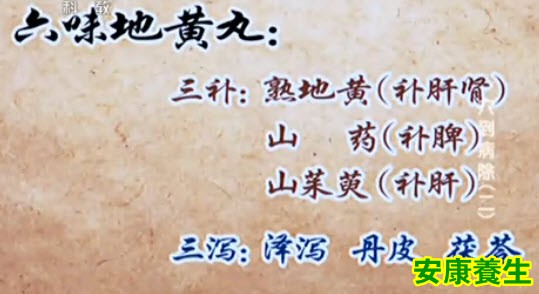 科教
六味地黄丸：
三补：熟地黄（补肝肾）
山 药（补脾）
山茱萸（补肝）
三泻：泽泻 丹皮 茯苓
到病除（二）
安康養生